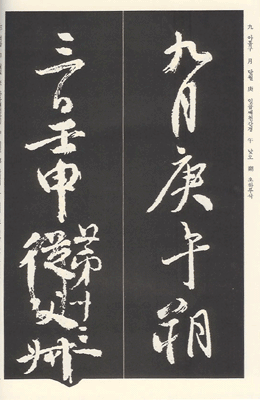 九 아홉구 月 달월 庚 일곱째천간경 午 낮오 朔 초하루삭
九月庚午朔
三日壬申從父第十三叔